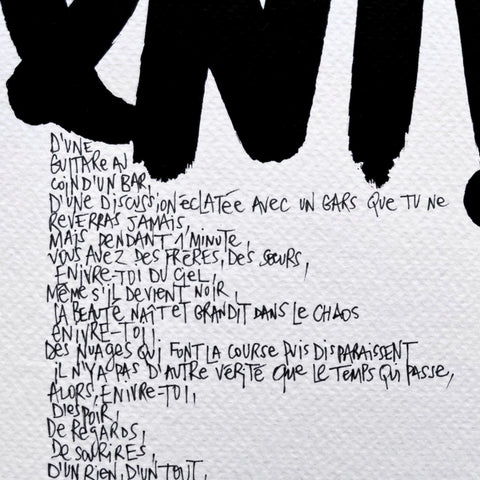 D'UNE
GUITARE AU
COIN D'UN BAR,
D'UNE DISCUSSION ÉCLATÉE AVEC UN GARS QUE TU NE
REVERRAS JAMAIS,
MAIS PENDANT 1 MINUTE,
VOUS AVEZ DES FRÈRES, DES SŒURS,
ENIVRE-TOI DU CIEL,
MÊME S'IL DEVIENT NOIR,
LA BEAUTÉ NAÎT ET GRANDIT DANS LE CHAOS
ENIVRE-TOI,
DES NUAGES QUI FONT LA COURSE PUIS DISPARAISSENT
IL N'Y A PAS D'AUTRE VERITÉ QUE LE TEMPS QUI PASSE,
ALORS, ENIVRE-TOI,
D'ESPOIR,
DE REGARDS,
DE SOURIRES,
D'UN RIEN, D'UN TOUT,